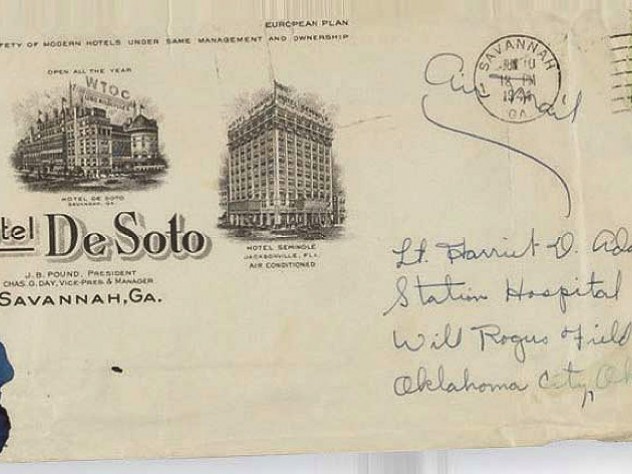 EUROPEAN PLAN
FETY OF MODERN HOTELS UNDER SAME MANAGEMENT AND OWNERSHIP
OPEN ALL THE YEAR
WTOC
HOTEL DE SOTO
SAVANNAH, GA.
HOTEL SEMINOLE
JACKSONVILLE, FLA.
AIR CONDITIONED
tel De Soto
J.B. POUND, PRESIDENT
CHAS. G. DAY, VICE-PRES & MANAGER
SAVANNAH, GA.
SAVANNAH
JUN 10
GA.
Air Mail
Lt. Harriet D. Ada
Station Hospital
Will Rogers Field
Oklahoma City, Ok